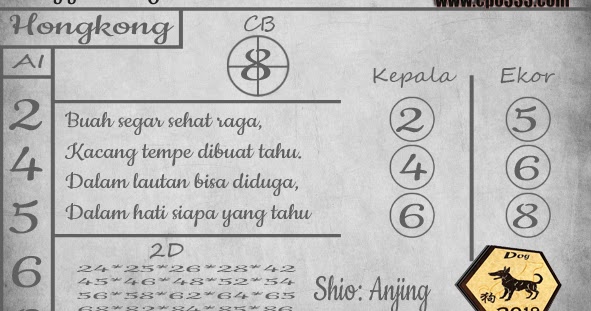 Hongkong
CB
8
AI
2
4
5
6
Buah segar sehat raga,
Kacang tempe dibuat tahu.
Dalam lautan bisa diduga,
Dalam hati siapa yang tahu
2D
24*25*26*28*42
45*46*48*52*54
56*58*62*64*65
68*82*84*85*86
Kepala
2
4
6
Ekor
5
6
8
Shio: Anjing
Dog
狗
2018